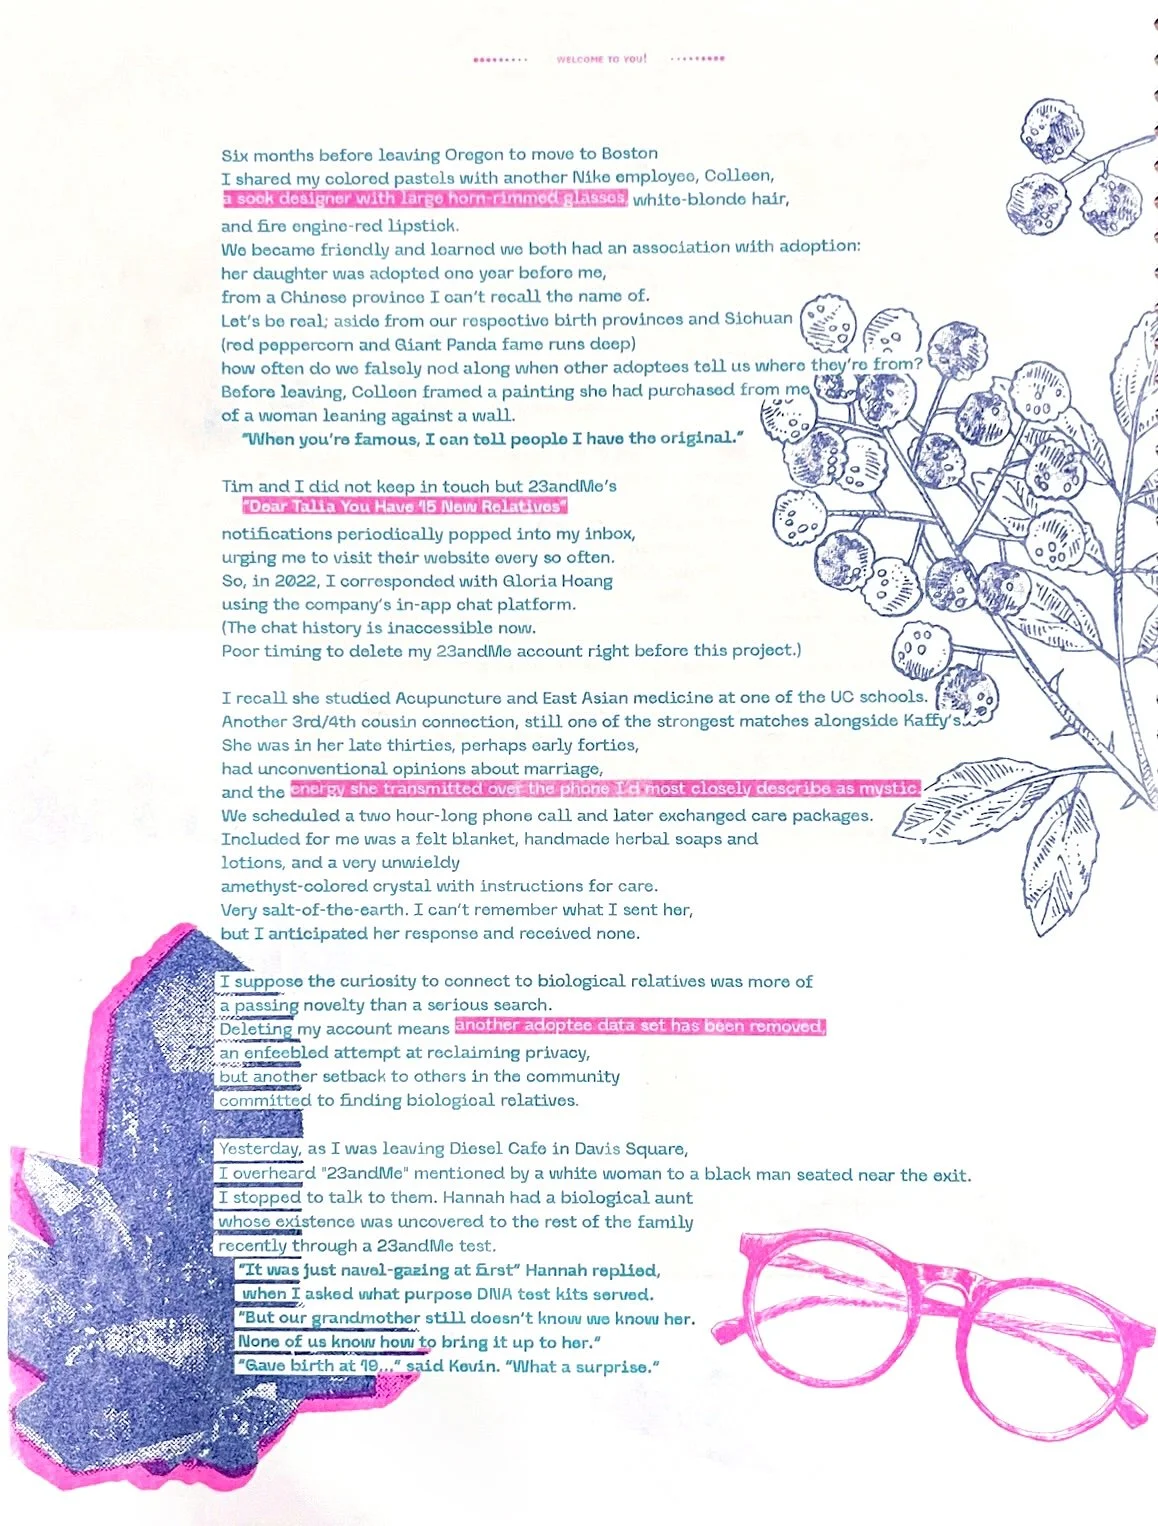 WELCOME TO YOU!
Six months before leaving Oregon to move to Boston
I shared my colored pastels with another Nike employee, Colleen,
a sock designer with large horn-rimmed glasses, white-blonde hair,
and fire engine-red lipstick.
We became friendly and learned we both had an association with adoption:
her daughter was adopted one year before me,
from a Chinese province I can't recall the name of.
Let's be real; aside from our respective birth provinces and Sichuan
(red peppercorn and Giant Panda fame runs deep)
how often do we falsely nod along when other adoptees tell us where they're from?
Before leaving, Colleen framed a painting she had purchased from me
of a woman leaning against a wall.
"When you're famous, I can tell people I have the original."
Tim and I did not keep in touch but 23andMe's
"Dear Talia You Have 15 New Relatives"
notifications periodically popped into my inbox,
urging me to visit their website every so often.
So, in 2022, I corresponded with Gloria Hoang
using the company's in-app chat platform.
(The chat history is inaccessible now.
Poor timing to delete my 23andMe account right before this project.)
I recall she studied Acupuncture and East Asian medicine at one of the UC schools.
Another 3rd/4th cousin connection, still one of the strongest matches alongside Kaffy's.
She was in her late thirties, perhaps early forties,
had unconventional opinions about marriage,
and the energy she transmitted over the phone I'd most closely describe as mystic.
We scheduled a two hour-long phone call and later exchanged care packages.
Included for me was a felt blanket, handmade herbal soaps and
lotions, and a very unwieldy
amethyst-colored crystal with instructions for care.
Very salt-of-the-earth. I can't remember what I sent her,
but I anticipated her response and received none.
I suppose the curiosity to connect to biological relatives was more of
a passing novelty than a serious search.
Deleting my account means another adoptee data set has been removed,
an enfeebled attempt at reclaiming privacy,
but another setback to others in the community
committed to finding biological relatives.
Yesterday, as I was leaving Diesel Cafe in Davis Square,
I overheard "23andMe" mentioned by a white woman to a black man seated near the exit.
I stopped to talk to them. Hannah had a biological aunt
whose existence was uncovered to the rest of the family
recently through a 23andMe test.
"It was just navel-gazing at first" Hannah replied,
when I asked what purpose DNA test kits served.
"But our grandmother still doesn't know we know her.
None of us know how to bring it up to her."
"Gave birth at 19..." said Kevin. "What a surprise."